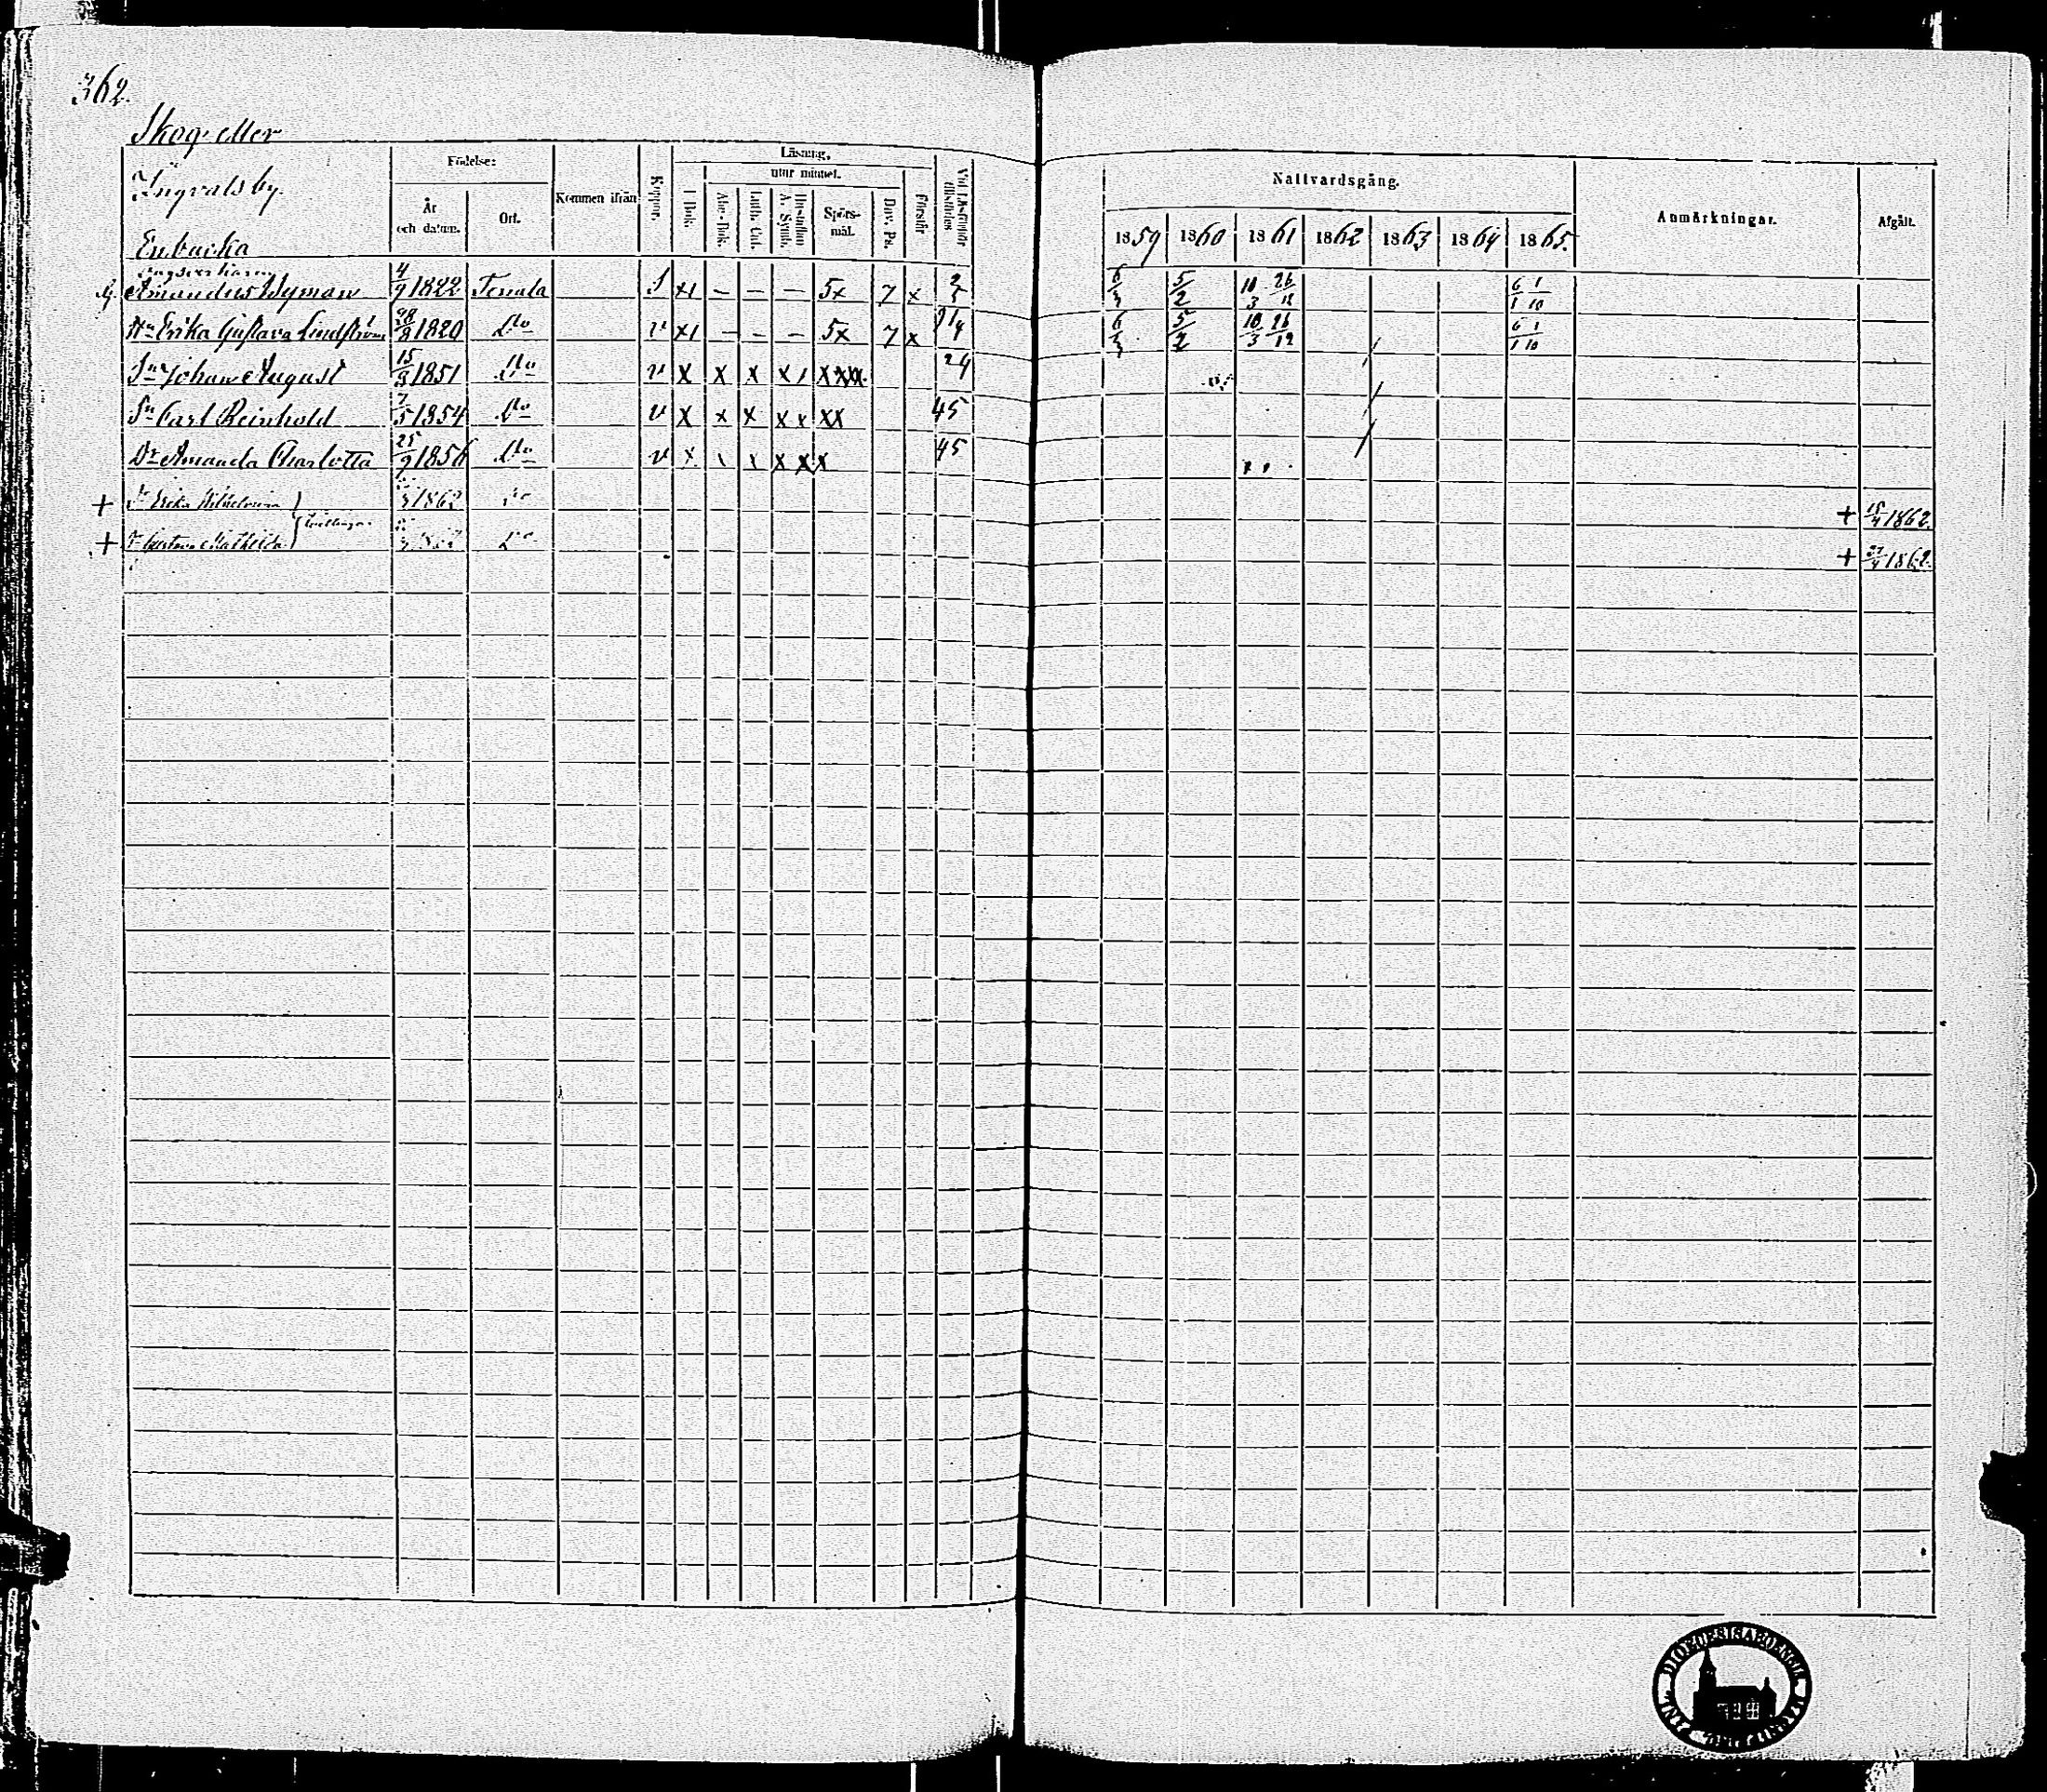 362.
Skog eller
Ingvalsby.
Enbacka
Födelse:
År och datum.
Ort.
Kommen ifrån
Koppor.
Läsning,
I Bok.
utur minnet.
Abc-Bok.
Luth. Cat.
Hustaflan A. Symb.
Spörsmål.
Dav. Ps.
Förstår
Nattvardsgång.
1859 1860 1861 1862 1863 1864 1865.
Anmärkningar.
Afgått.
Amandus Nyman 4/9 1822 Tenala S x1 — — — 5x 7 x 6/3 5/2 10/3 26/12 6/1 1/10
Hn Erika Gustava Lindström 28/8 1820 Do v x1 — — — 5x 7 x 6/3 5/2 10/3 26/12 6/1 1/10
Sn Johan August 15/3 1851 Do v x x x x1 xxxx 24
Sn Carl Reinhold 7/5 1854 Do v x x x xx xx 45
Dr Amanda Charlotta 25/2 1856 Do v x 45
+ Dr Erika Wilhelmina 1862 Do + 15/4 1862.
+ Dr Gustava Mathilda Do + 21/4 1862.